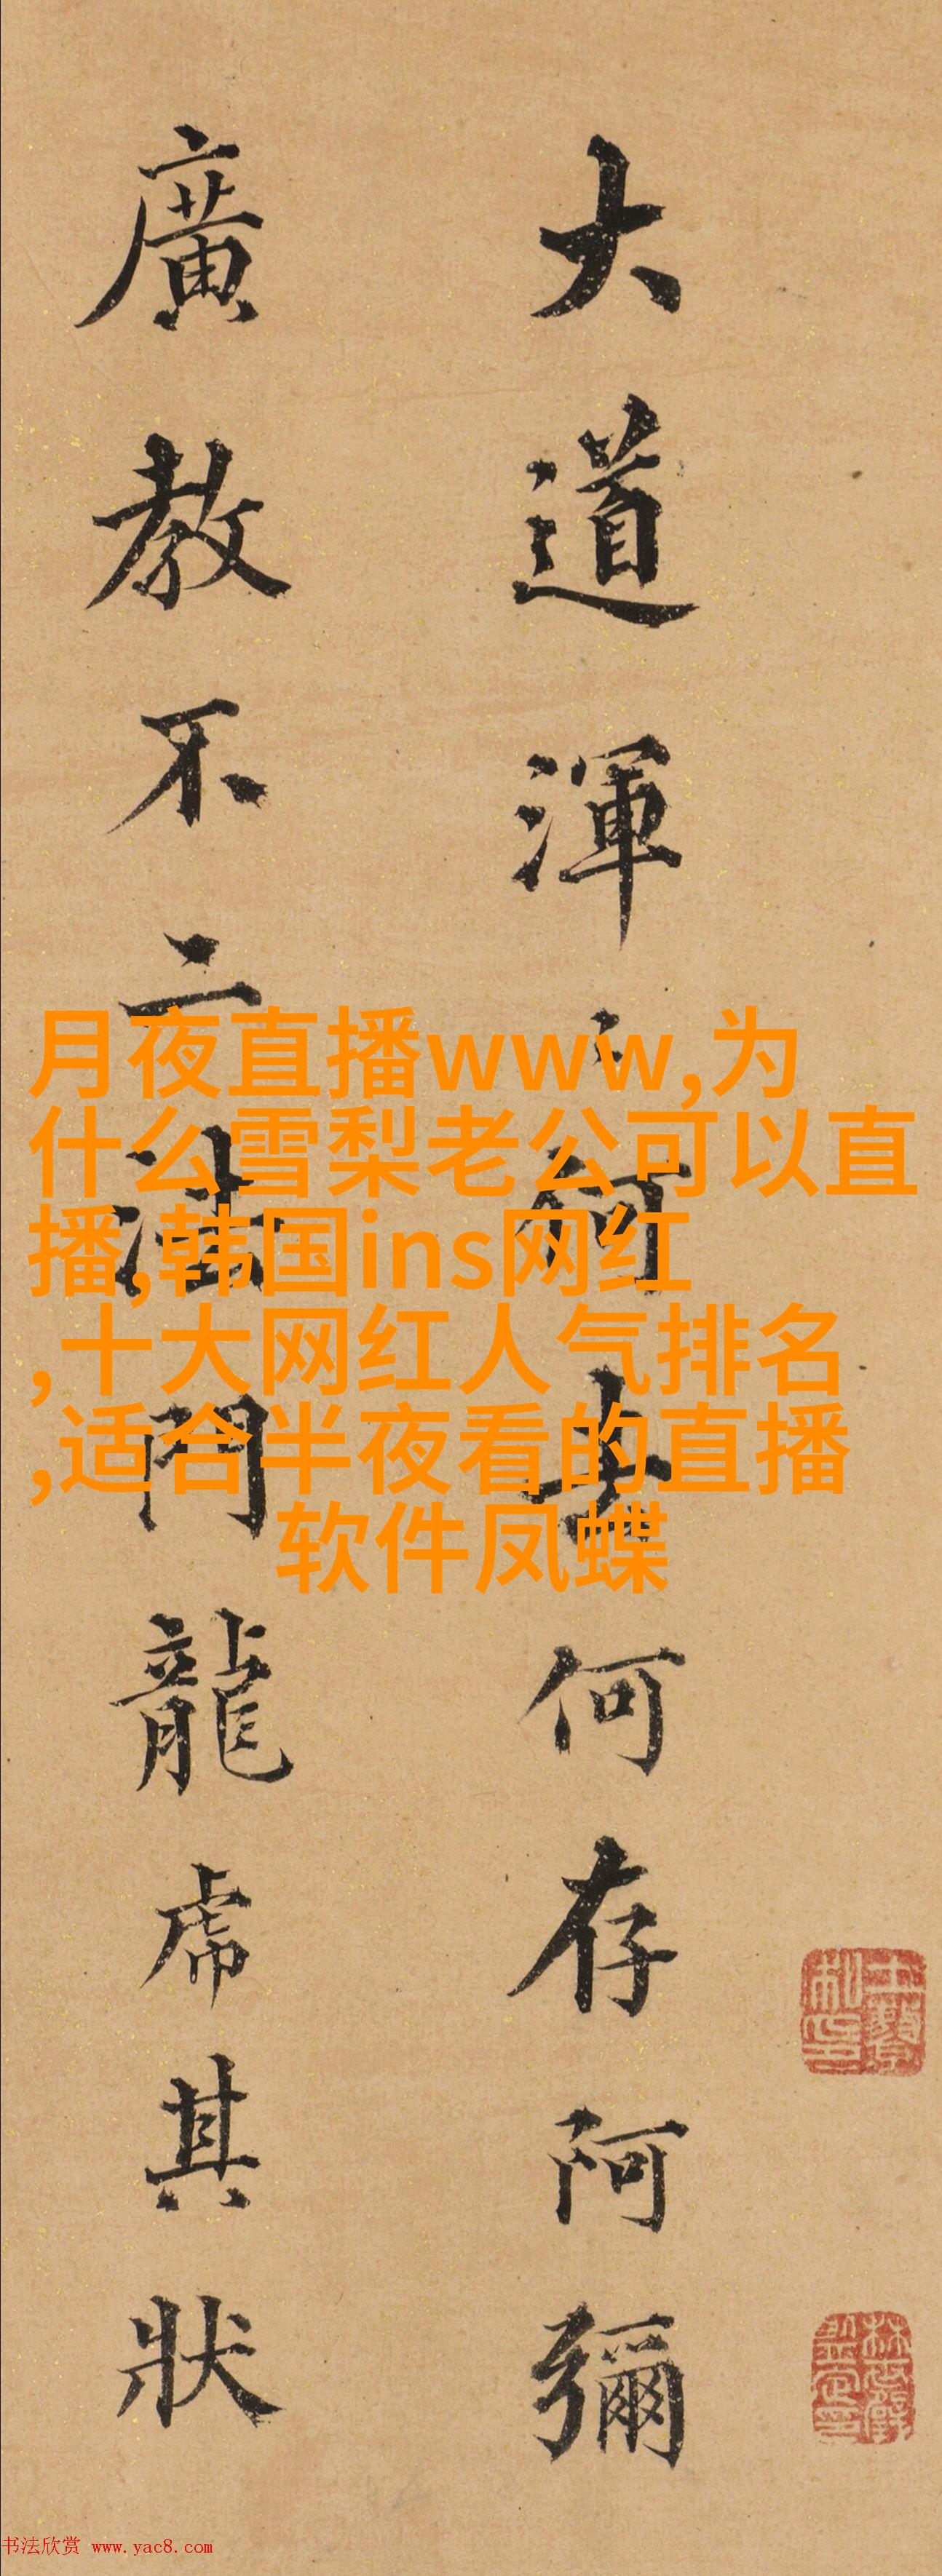 大道渾〻何去何存阿彌
廣教不二法門龍虎其狀
月夜直播www,为
什么雪梨老公可以直
播,韩国ins网红
,十大网红人气排名
,适合半夜看的直播
软件凤蝶
书法欣赏 www.yac8.com